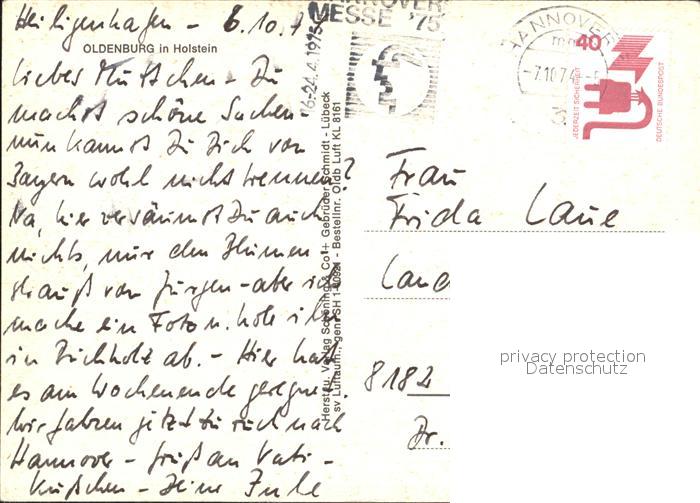 Heiligenhafen – 6.10.7
OLDENBURG in Holstein
Liebes Muttchen – Du
machst schöne Sachen –
nun kannst Du Dich von
Bayern wohl nicht trennen?
Na, hier versäumst Du auch
nichts, nur den Blumen
strauß von Jürgen – aber ich
mache ein Foto u. hole ihn
in Buchholz ab. – Hier hat
es am Wochenende geregnet
Wir fahren jetzt zurück nach
Hannover – Gruß an Vati –
Küßchen – Deine
HANNOVER
MESSE '75
16.-24.4.1975
HANNOVER
-7.10.74
40
JEDERZEIT SICHERHEIT
DEUTSCHE BUNDESPOST
Herst. u. Verlag Schöning & Co + Gebrüder Schmidt - Lübeck
Bestellnr. Oldb Luft KL 8161
Frau
Frida Laue
Land
8182
Dr.
privacy protection
Datenschutz